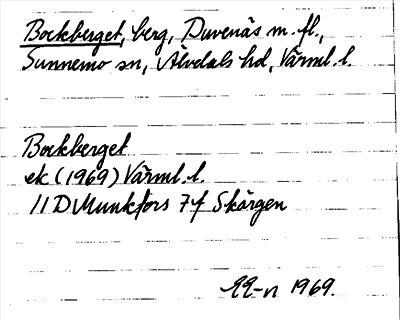 Bockberget, berg, Duvenäs m. fl.,
Sunnemo sn, Älvdals hd, Värml. l.
Bockberget
ek (1969) Värml. l.
11 D Munkfors 7 f Skärgen
1969.